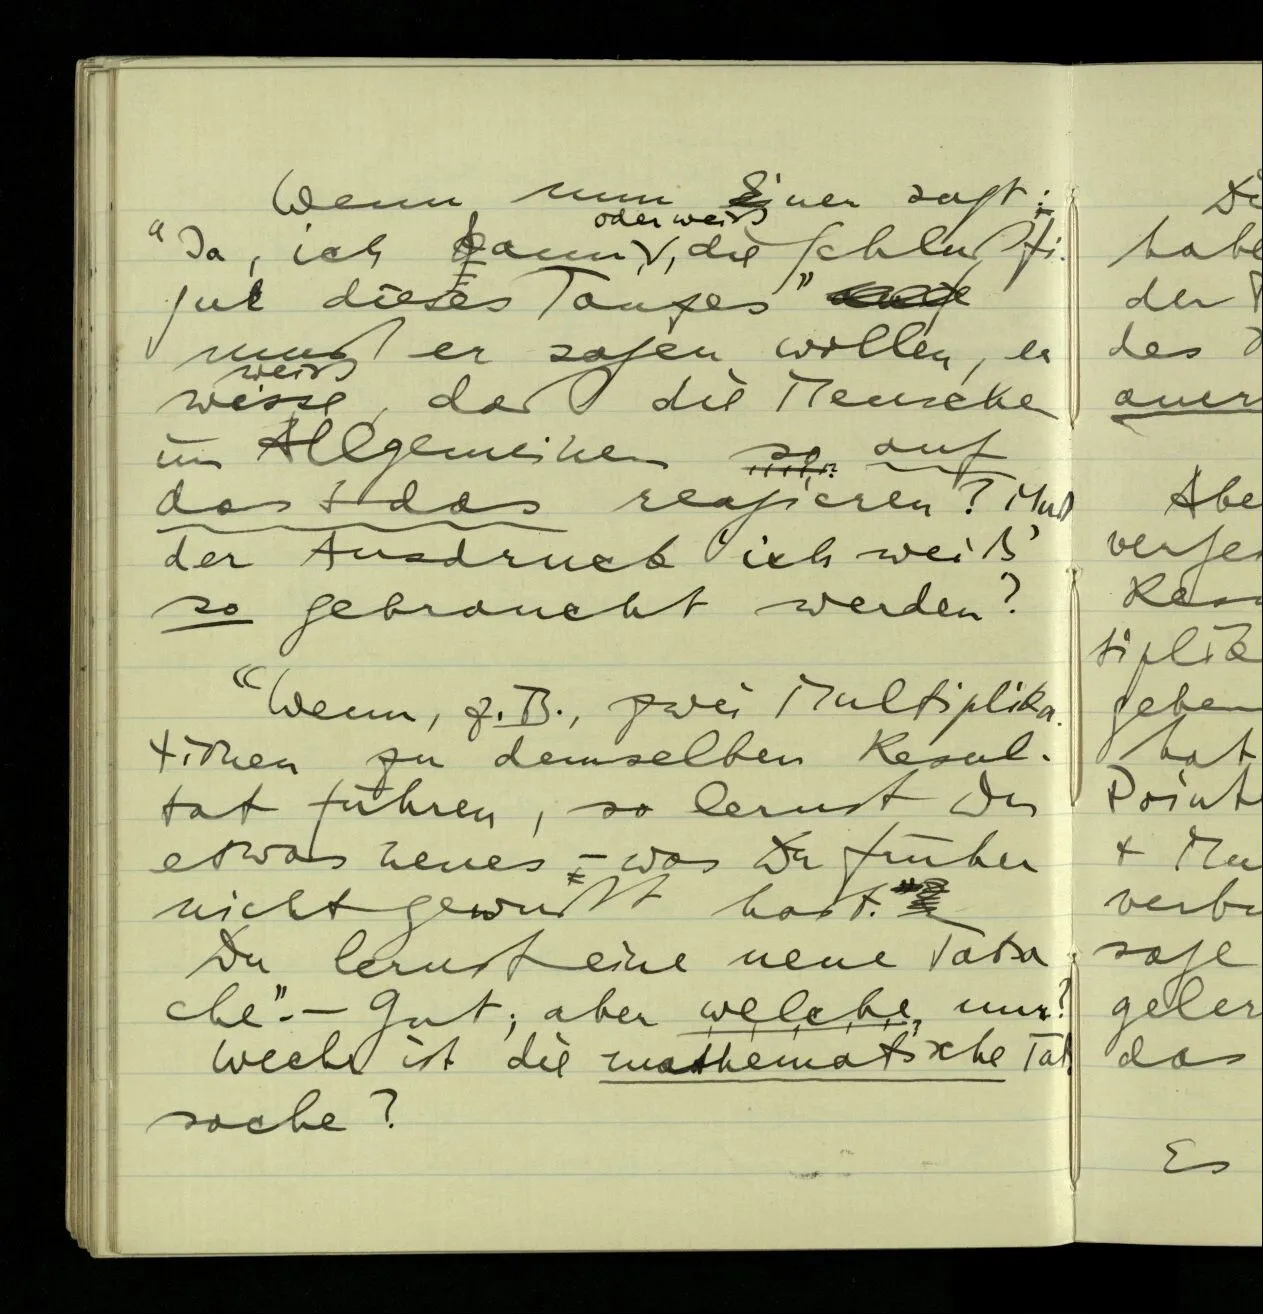 Wenn nun Einer sagt:
oder weiß
"Ja, ich kann, die Schlußfi-
gur dieses Tanzes"
muß er sagen wollen, er
weiß
wisse, daß die Menschen
im Allgemeinen so auf
das & das reagieren? Muß
der Ausdruck 'ich weiß'
so gebraucht werden?
"Wenn, z.B., zwei Multiplika-
tionen zu demselben Resul-
tat führen, so lernst Du
etwas neues – was Du früher
nicht gewußt hast."
Du lernst eine neue Tatsa
che". – Gut; aber welche nur?
Welche ist die mathematische Tat
sache?
Di
habe
der
des
aner
Abe
verge
Resu
tiplik
geben
hat
Point
+ Mu
verbu
sage
geler
das
Es